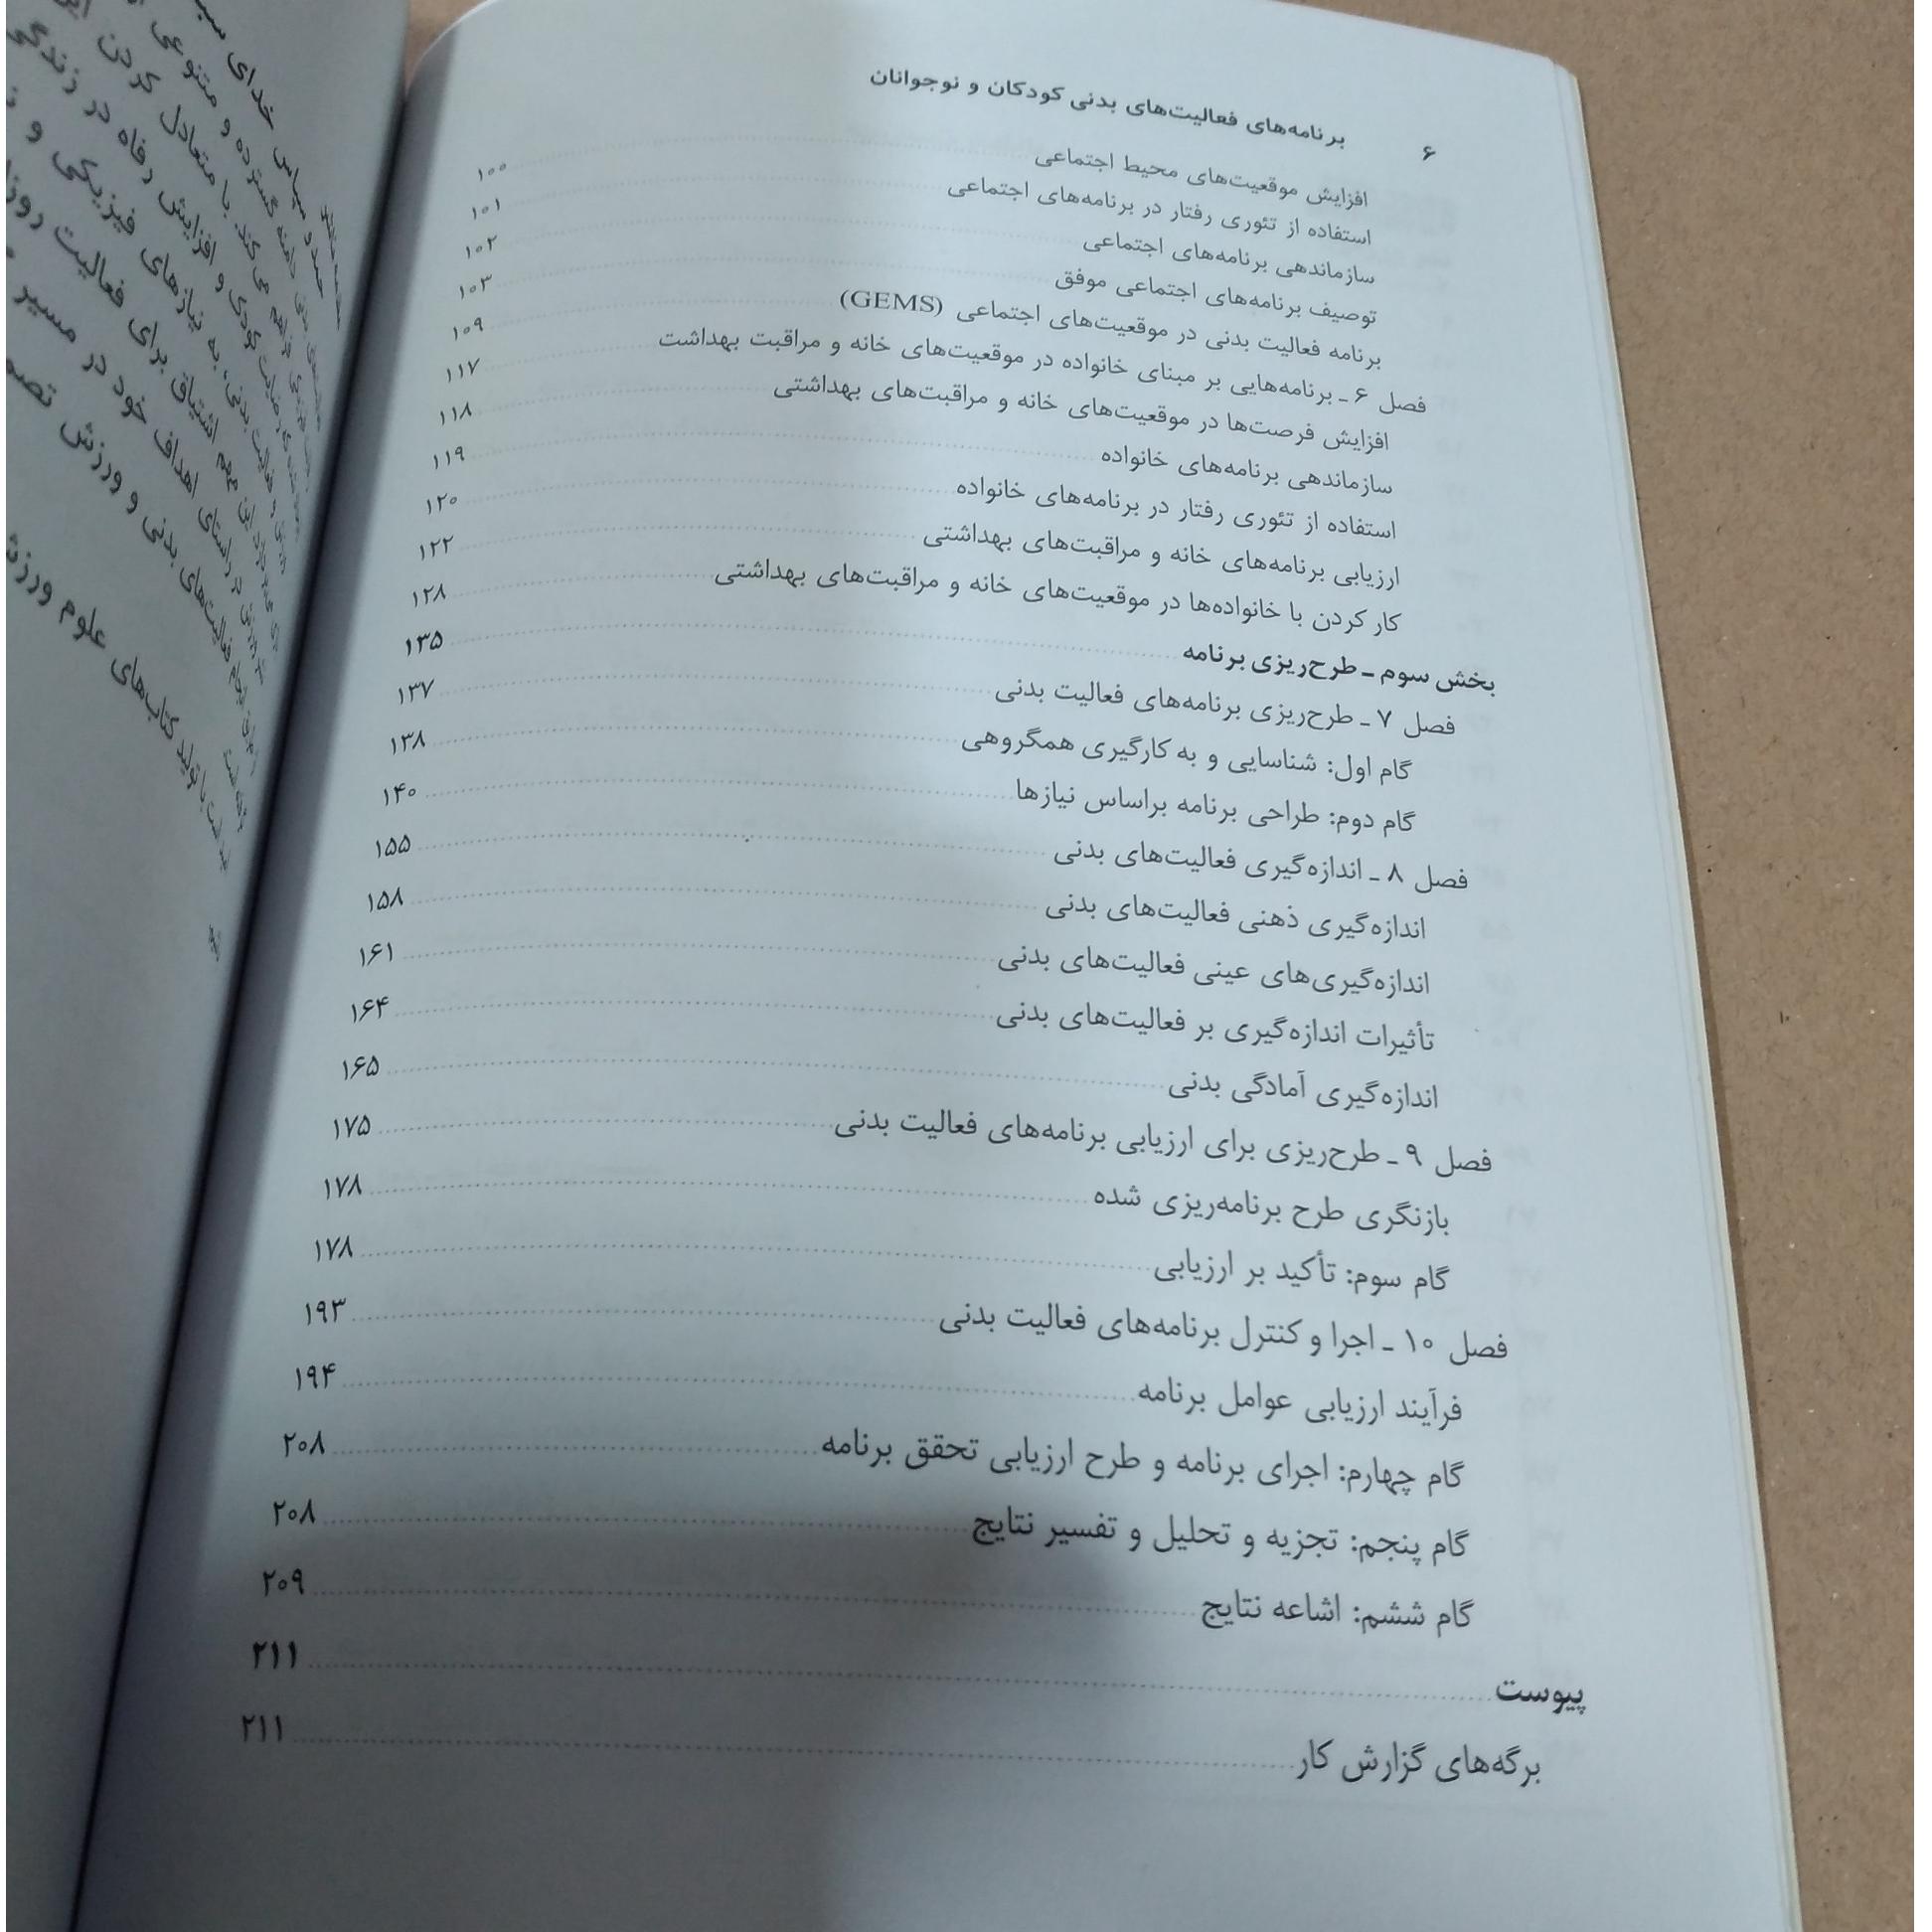 ۶ برنامه‌های فعالیت‌های بدنی کودکان و نوجوانان
افزایش موقعیت‌های محیط اجتماعی ۱۰۰
استفاده از تئوری رفتار در برنامه‌های اجتماعی ۱۰۱
سازماندهی برنامه‌های اجتماعی ۱۰۲
توصیف برنامه‌های اجتماعی موفق ۱۰۳
برنامه فعالیت بدنی در موقعیت‌های اجتماعی (GEMS) ۱۰۹
فصل ۶ ـ برنامه‌هایی بر مبنای خانواده در موقعیت‌های خانه و مراقبت بهداشت ۱۱۷
افزایش فرصت‌ها در موقعیت‌های خانه و مراقبت‌های بهداشتی ۱۱۸
سازماندهی برنامه‌های خانواده ۱۱۹
استفاده از تئوری رفتار در برنامه‌های خانواده ۱۲۰
ارزیابی برنامه‌های خانه و مراقبت‌های بهداشتی ۱۲۲
کار کردن با خانواده‌ها در موقعیت‌های خانه و مراقبت‌های بهداشتی ۱۲۸
بخش سوم ـ طرح‌ریزی برنامه ۱۳۵
فصل ۷ ـ طرح‌ریزی برنامه‌های فعالیت بدنی ۱۳۷
گام اول: شناسایی و به کارگیری همگروهی ۱۳۸
گام دوم: طراحی برنامه براساس نیازها ۱۴۰
فصل ۸ ـ اندازه‌گیری فعالیت‌های بدنی ۱۵۵
اندازه‌گیری ذهنی فعالیت‌های بدنی ۱۵۸
اندازه‌گیری‌های عینی فعالیت‌های بدنی ۱۶۱
تأثیرات اندازه‌گیری بر فعالیت‌های بدنی ۱۶۴
اندازه‌گیری آمادگی بدنی ۱۶۵
فصل ۹ ـ طرح‌ریزی برای ارزیابی برنامه‌های فعالیت بدنی ۱۷۵
بازنگری طرح برنامه‌ریزی شده ۱۷۸
گام سوم: تأکید بر ارزیابی ۱۷۸
فصل ۱۰ ـ اجرا و کنترل برنامه‌های فعالیت بدنی ۱۹۳
فرآیند ارزیابی عوامل برنامه ۱۹۴
گام چهارم: اجرای برنامه و طرح ارزیابی تحقق برنامه ۲۰۸
گام پنجم: تجزیه و تحلیل و تفسیر نتایج ۲۰۸
گام ششم: اشاعه نتایج ۲۰۹
پیوست ۲۱۱
برگه‌های گزارش کار ۲۱۱